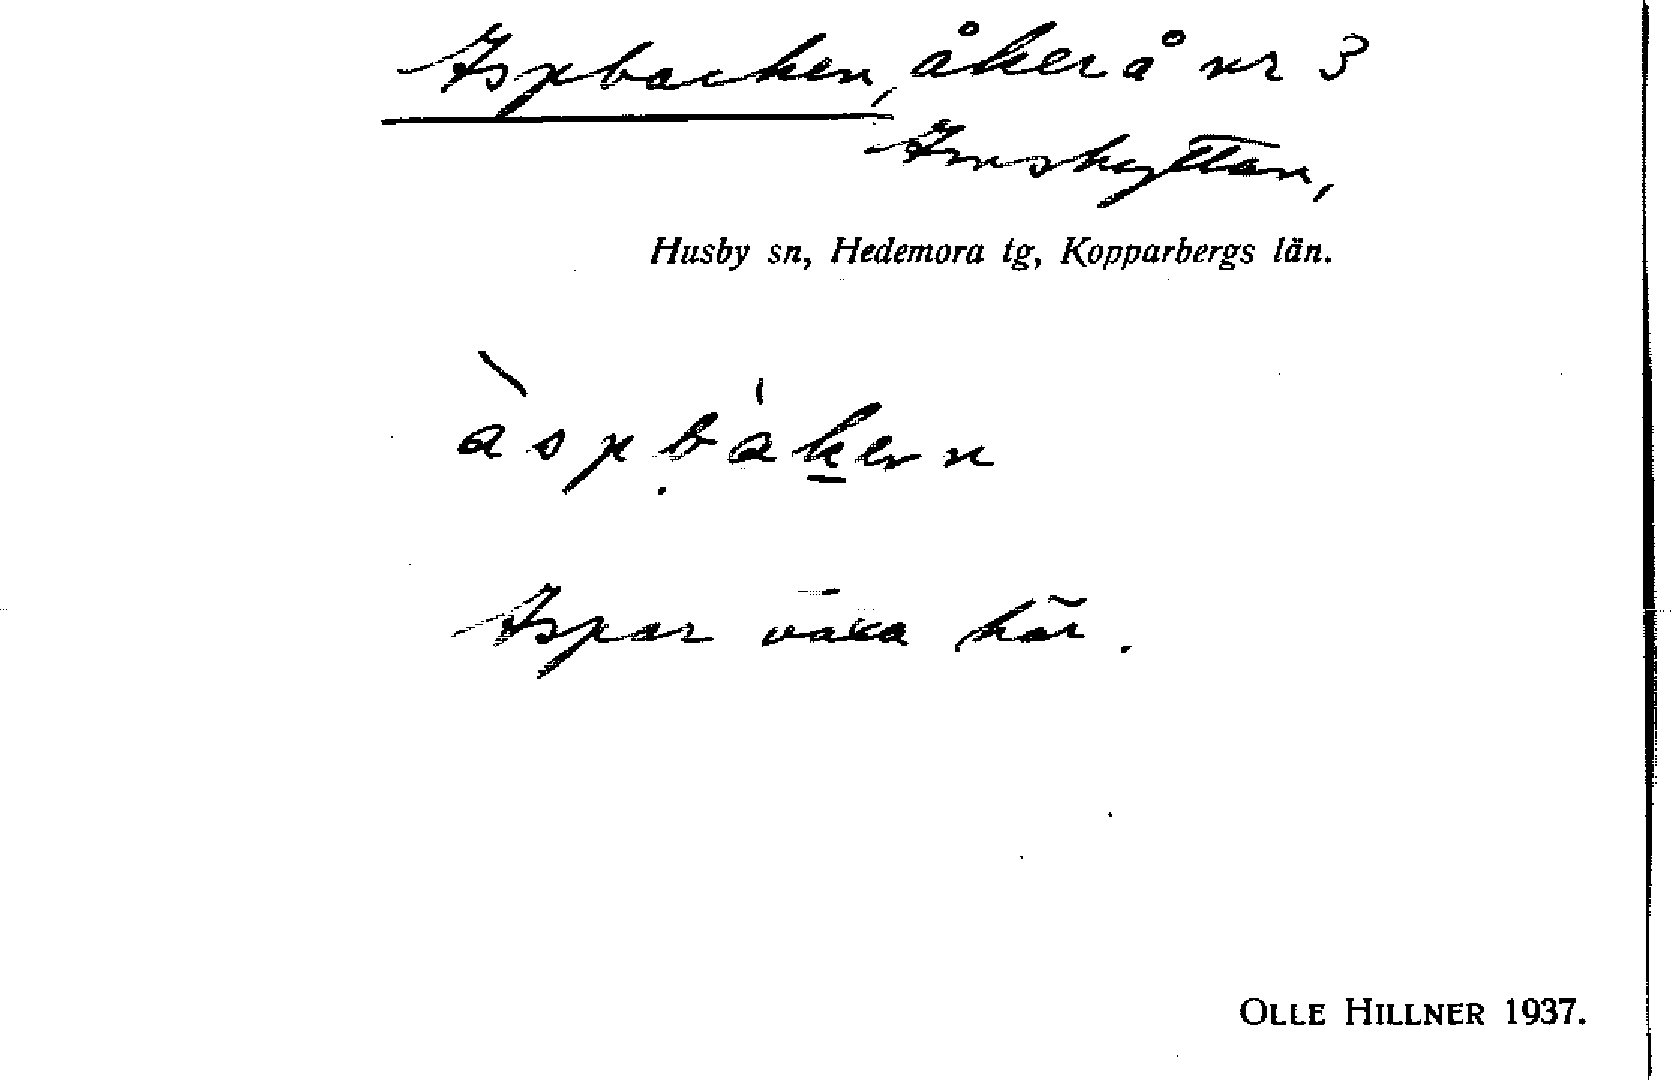 Aspbacken, åker å nr 3
Amshyttan,
Husby sn, Hedemora tg, Kopparbergs län.
àspḅák̲en
Aspar växa här.
OLLE HILLNER 1937.